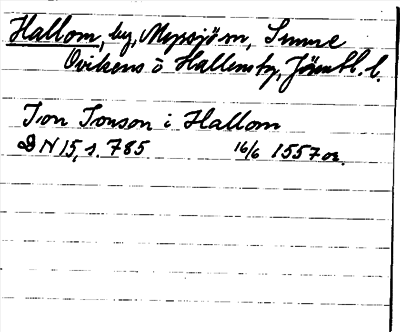 Hallom, by, Myssjö sn, Sunne
Ovikens o Hallens tg, Jämtl. l.
Jon Jonson i Hallom
DN 15, s. 785 16/6 1557 or.